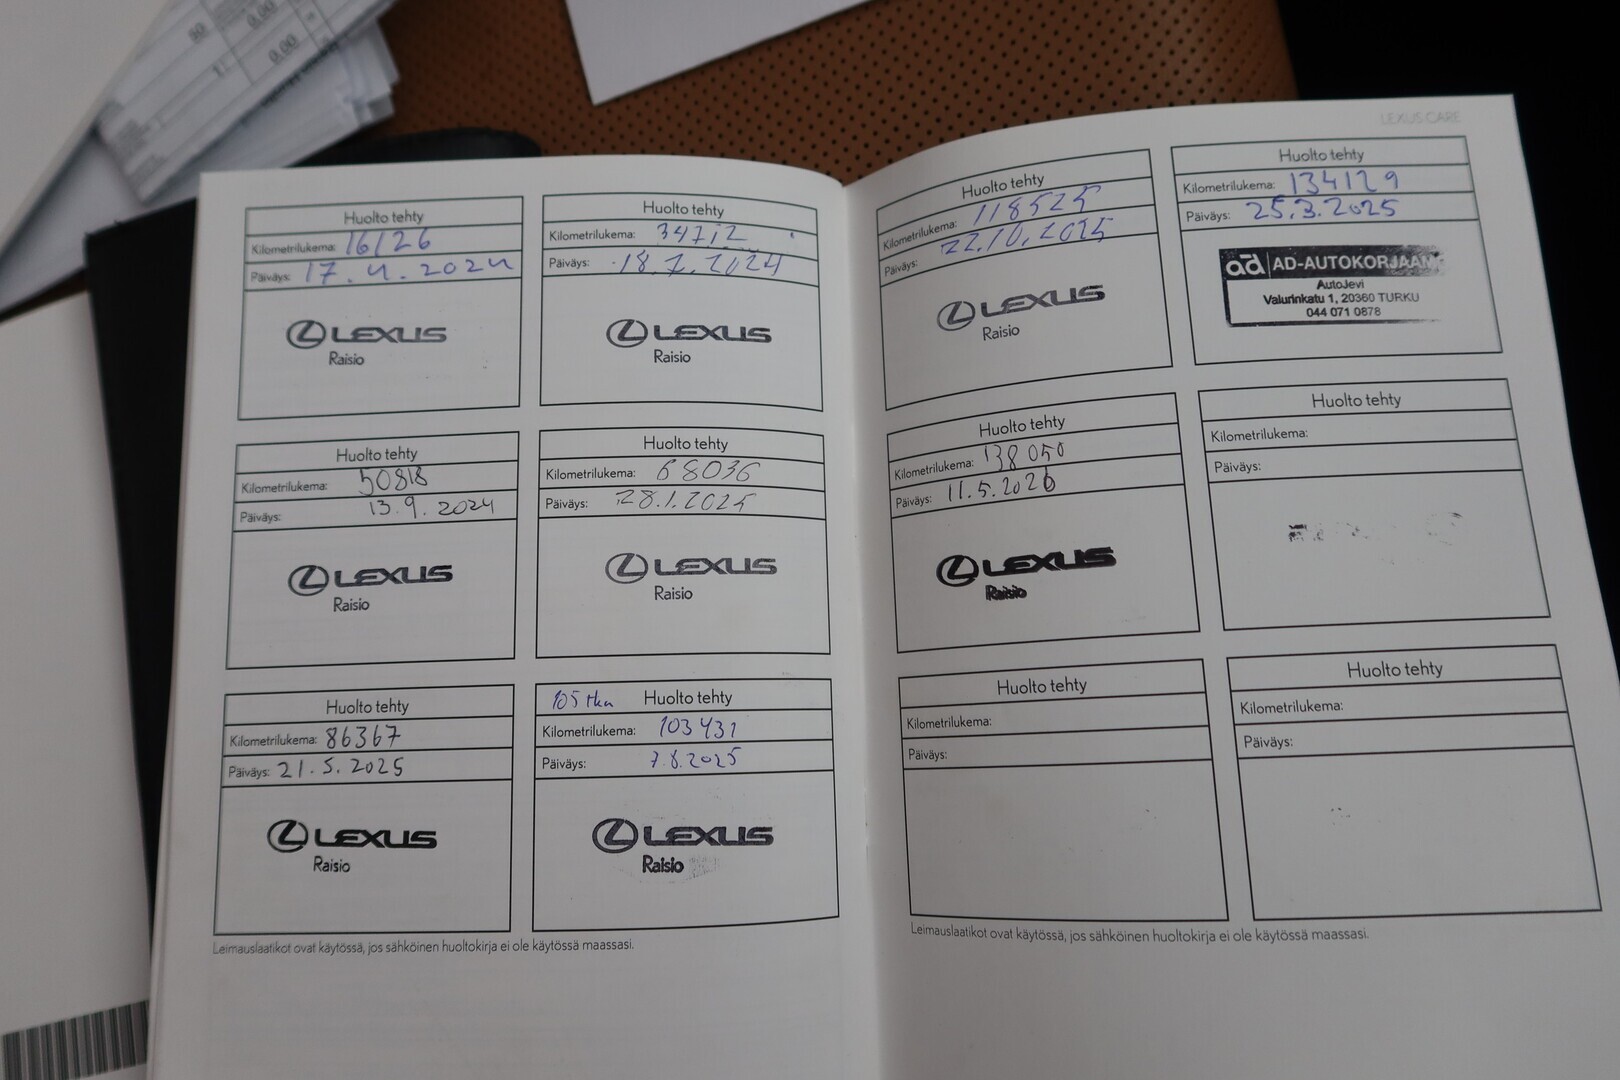 80
0.00
0.00
LEXUS CARE
Huolto tehty
Kilometrilukema: 16126
Päiväys: 17.4.2024
LEXUS
Raisio
Huolto tehty
Kilometrilukema: 34712
Päiväys: 18.7.2024
LEXUS
Raisio
Huolto tehty
Kilometrilukema: 50818
Päiväys: 13.9.2024
LEXUS
Raisio
Huolto tehty
Kilometrilukema: 68036
Päiväys: 28.1.2025
LEXUS
Raisio
Huolto tehty
Kilometrilukema: 86367
Päiväys: 21.5.2025
LEXUS
Raisio
105 tkm Huolto tehty
Kilometrilukema: 103431
Päiväys: 7.8.2025
LEXUS
Raisio
Leimauslaatikot ovat käytössä, jos sähköinen huoltokirja ei ole käytössä maassasi.
Huolto tehty
Kilometrilukema: 118525
Päiväys: 22.10.2025
LEXUS
Raisio
Huolto tehty
Kilometrilukema: 134129
Päiväys: 25.3.2025
ad AD-AUTOKORJAAM
AutoJevi
Valurinkatu 1, 20360 TURKU
044 071 0878
Huolto tehty
Kilometrilukema: 138050
Päiväys: 11.5.2026
LEXUS
Raisio
Huolto tehty
Kilometrilukema:
Päiväys:
Huolto tehty
Kilometrilukema:
Päiväys:
Huolto tehty
Kilometrilukema:
Päiväys:
Leimauslaatikot ovat käytössä, jos sähköinen huoltokirja ei ole käytössä maassasi.